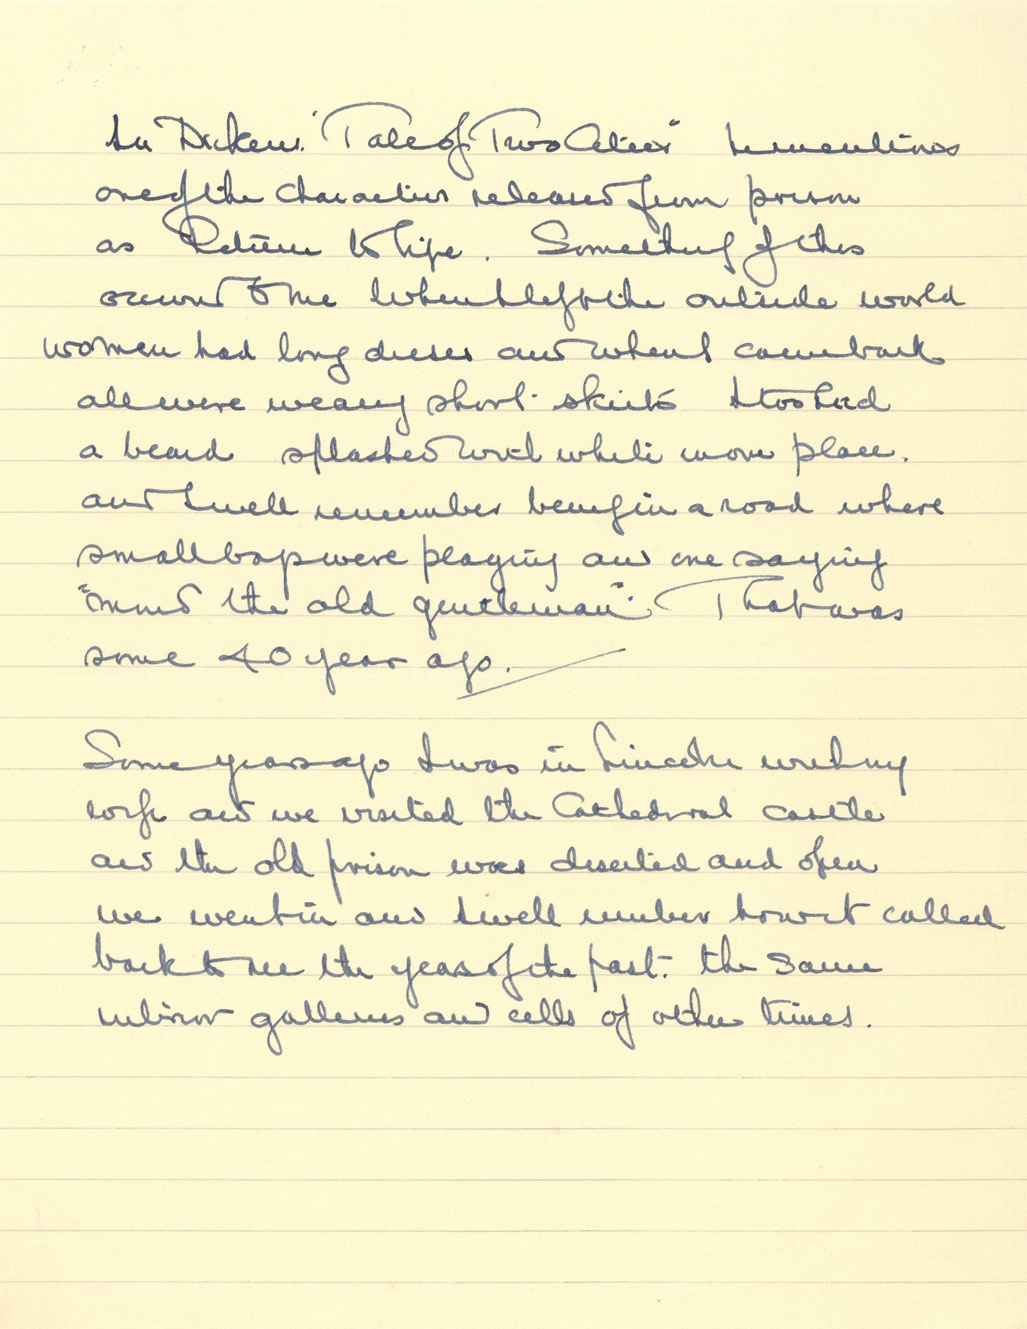 In Dickens 'Tale of Two Cities" he mentions
one of the characters released from prison
as Return to life. Something of this
occurred to me when I left the outside world
women had long dresses and when I came back
all were wearing short skirts I too had
a beard splashed with white in one place.
and I well remember being in a road where
small boys were playing and one saying
"mind the old gentleman". That was
some 40 years ago.
Some years ago I was in Lincoln with my
wife and we visited the Cathedral castle
and the old prison was deserted and open
we went in and I well remember how it called
back to me the years of the past. the same
interior galleries and cells of other times.